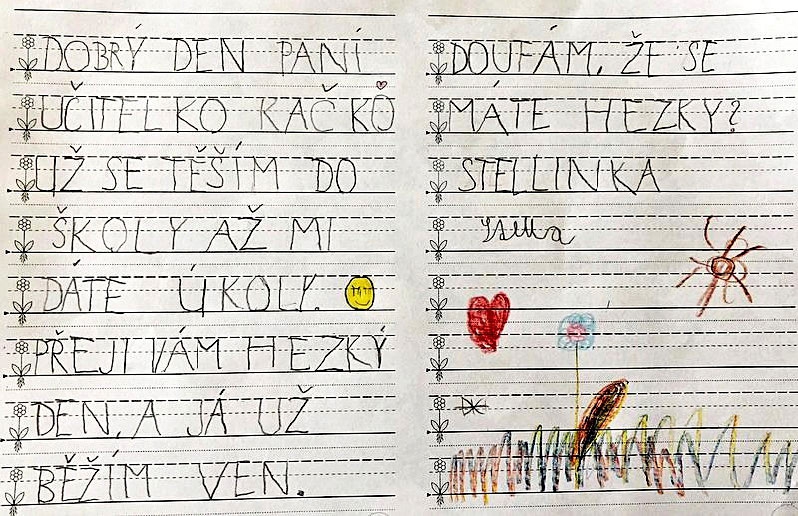 DOBRÝ DEN PANÍ
UČITELKO KAČKO
UŽ SE TĚŠÍM DO
ŠKOLY AŽ MI
DÁTE ÚKOLY.
PŘEJI VÁM HEZKÝ
DEN, A JÁ UŽ
BĚŽÍM VEN.
DOUFÁM, ŽE SE
MÁTE HEZKY?
STELLINKA
Stella